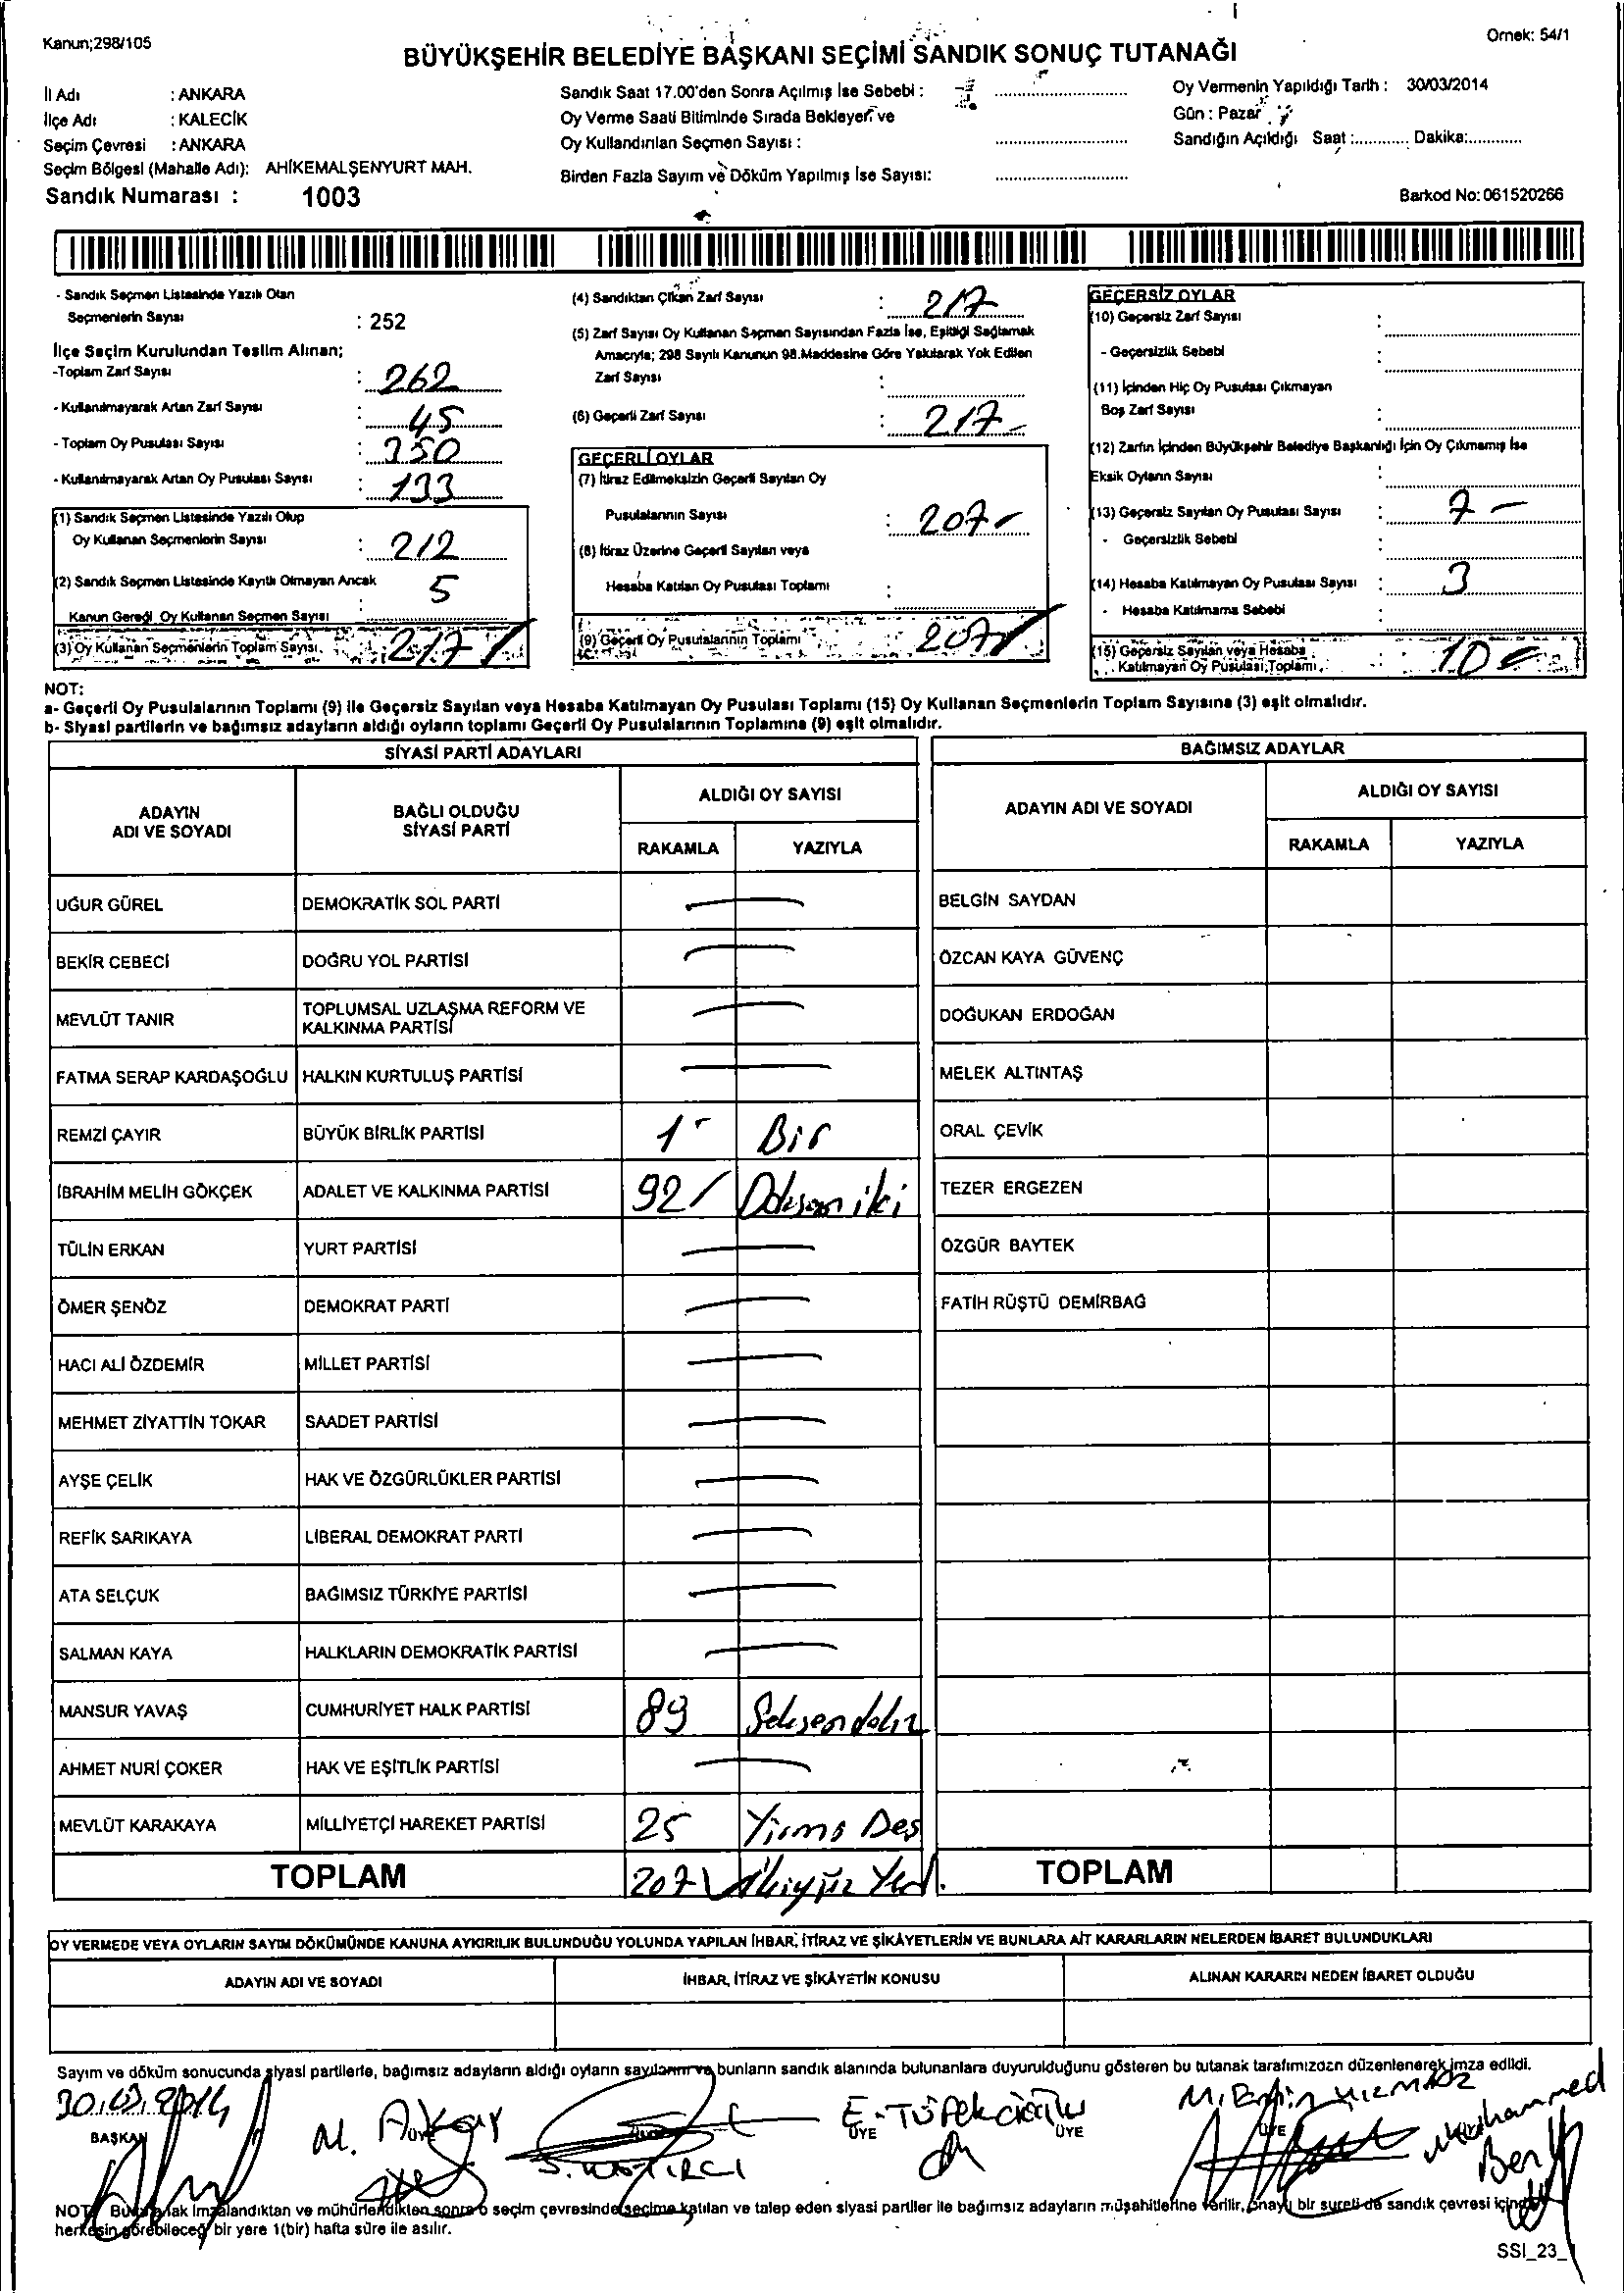 Kanun;298/105
Örnek: 54/1
BÜYÜKŞEHİR BELEDİYE BAŞKANI SEÇİMİ SANDIK SONUÇ TUTANAĞI
İl Adı : ANKARA
İlçe Adı : KALECİK
Seçim Çevresi : ANKARA
Seçim Bölgesi (Mahalle Adı): AHİKEMALŞENYURT MAH.
Sandık Numarası : 1003
Sandık Saat 17.00'den Sonra Açılmış İse Sebebi :
Oy Verme Saati Bitiminde Sırada Bekleyen ve
Oy Kullandırılan Seçmen Sayısı :
Birden Fazla Sayım ve Döküm Yapılmış İse Sayısı:
Oy Vermenin Yapıldığı Tarih : 30/03/2014
Gün : Pazar
Sandığın Açıldığı Saat :............ Dakika:............
Barkod No: 061520266
- Sandık Seçmen Listesinde Yazılı Olan
Seçmenlerin Sayısı : 252
İlçe Seçim Kurulundan Teslim Alınan;
-Toplam Zarf Sayısı : 262
- Kullanılmayarak Artan Zarf Sayısı : 45
- Toplam Oy Pusulası Sayısı : 350
- Kullanılmayarak Artan Oy Pusulası Sayısı : 133
(1) Sandık Seçmen Listesinde Yazılı Olup
Oy Kullanan Seçmenlerin Sayısı : 212
(2) Sandık Seçmen Listesinde Kayıtlı Olmayan Ancak
Kanun Gereği Oy Kullanan Seçmen Sayısı : 5
(3) Oy Kullanan Seçmenlerin Toplam Sayısı 217
(4) Sandıktan Çıkan Zarf Sayısı : 217
(5) Zarf Sayısı Oy Kullanan Seçmen Sayısından Fazla İse, Eşitliği Sağlamak
Amacıyla; 298 Sayılı Kanunun 98.Maddesine Göre Yakılarak Yok Edilen
Zarf Sayısı :
(6) Geçerli Zarf Sayısı : 217-
GEÇERLİ OYLAR
(7) İtiraz Edilmeksizin Geçerli Sayılan Oy
Pusulalarının Sayısı : 207-
(8) İtiraz Üzerine Geçerli Sayılan veya
Hesaba Katılan Oy Pusulası Toplamı :
(9) Geçerli Oy Pusulalarının Toplamı 207
GEÇERSİZ OYLAR
(10) Geçersiz Zarf Sayısı :
- Geçersizlik Sebebi :
(11) İçinden Hiç Oy Pusulası Çıkmayan
Boş Zarf Sayısı :
(12) Zarfın İçinden Büyükşehir Belediye Başkanlığı İçin Oy Çıkmamış İse
Eksik Oyların Sayısı :
(13) Geçersiz Sayılan Oy Pusulası Sayısı : 7 -
- Geçersizlik Sebebi :
(14) Hesaba Katılmayan Oy Pusulası Sayısı : 3
- Hesaba Katılmama Sebebi :
(15) Geçersiz Sayılan veya Hesaba
Katılmayan Oy Pusulası Toplamı 10
NOT:
a- Geçerli Oy Pusulalarının Toplamı (9) ile Geçersiz Sayılan veya Hesaba Katılmayan Oy Pusulası Toplamı (15) Oy Kullanan Seçmenlerin Toplam Sayısına (3) eşit olmalıdır.
b- Siyasi partilerin ve bağımsız adayların aldığı oyların toplamı Geçerli Oy Pusulalarının Toplamına (9) eşit olmalıdır.
SİYASİ PARTİ ADAYLARI
ADAYIN ADI VE SOYADI
BAĞLI OLDUĞU SİYASİ PARTİ
ALDIĞI OY SAYISI
RAKAMLA YAZIYLA
UĞUR GÜREL DEMOKRATİK SOL PARTİ —
BEKİR CEBECİ DOĞRU YOL PARTİSİ —
MEVLÜT TANIR TOPLUMSAL UZLAŞMA REFORM VE KALKINMA PARTİSİ —
FATMA SERAP KARDAŞOĞLU HALKIN KURTULUŞ PARTİSİ —
REMZİ ÇAYIR BÜYÜK BİRLİK PARTİSİ 1 - Bir
İBRAHİM MELİH GÖKÇEK ADALET VE KALKINMA PARTİSİ 92 / Doksan iki
TÜLİN ERKAN YURT PARTİSİ —
ÖMER ŞENÖZ DEMOKRAT PARTİ —
HACI ALİ ÖZDEMİR MİLLET PARTİSİ —
MEHMET ZİYATTİN TOKAR SAADET PARTİSİ —
AYŞE ÇELİK HAK VE ÖZGÜRLÜKLER PARTİSİ —
REFİK SARIKAYA LİBERAL DEMOKRAT PARTİ —
ATA SELÇUK BAĞIMSIZ TÜRKİYE PARTİSİ —
SALMAN KAYA HALKLARIN DEMOKRATİK PARTİSİ —
MANSUR YAVAŞ CUMHURİYET HALK PARTİSİ 89 Seksendokuz
AHMET NURİ ÇOKER HAK VE EŞİTLİK PARTİSİ —
MEVLÜT KARAKAYA MİLLİYETÇİ HAREKET PARTİSİ 25 Yirmi Beş
TOPLAM 207 İkiyüz Yedi
BAĞIMSIZ ADAYLAR
ADAYIN ADI VE SOYADI
ALDIĞI OY SAYISI
RAKAMLA YAZIYLA
BELGİN SAYDAN
ÖZCAN KAYA GÜVENÇ
DOĞUKAN ERDOĞAN
MELEK ALTINTAŞ
ORAL ÇEVİK
TEZER ERGEZEN
ÖZGÜR BAYTEK
FATİH RÜŞTÜ DEMİRBAĞ
TOPLAM
OY VERMEDE VEYA OYLARIN SAYIM DÖKÜMÜNDE KANUNA AYKIRILIK BULUNDUĞU YOLUNDA YAPILAN İHBAR, İTİRAZ VE ŞİKÂYETLERİN VE BUNLARA AİT KARARLARIN NELERDEN İBARET BULUNDUKLARI
ADAYIN ADI VE SOYADI
İHBAR, İTİRAZ VE ŞİKÂYETİN KONUSU
ALINAN KARARIN NEDEN İBARET OLDUĞU
Sayım ve döküm sonucunda siyasi partilerle, bağımsız adayların aldığı oyların sayılarını ve bunların sandık alanında bulunanlara duyurulduğunu gösteren bu tutanak tarafımızdan düzenlenerek imza edildi.
30.03.2014
BAŞKAN
M. Akay
ÜYE
E. Tüfekcioğlu
ÜYE
ÜYE
M. Emin YILMAZ
ÜYE
Muhammed
NOT: Bu tutanak imzalandıktan ve mühürlendikten sonra o seçim çevresinde seçime katılan ve talep eden siyasi partiler ile bağımsız adayların müşahitlerine verilir, onaylı bir sureti de sandık çevresi içinde
herkesin görebileceği bir yere 1(bir) hafta süre ile asılır.
SSI_23_